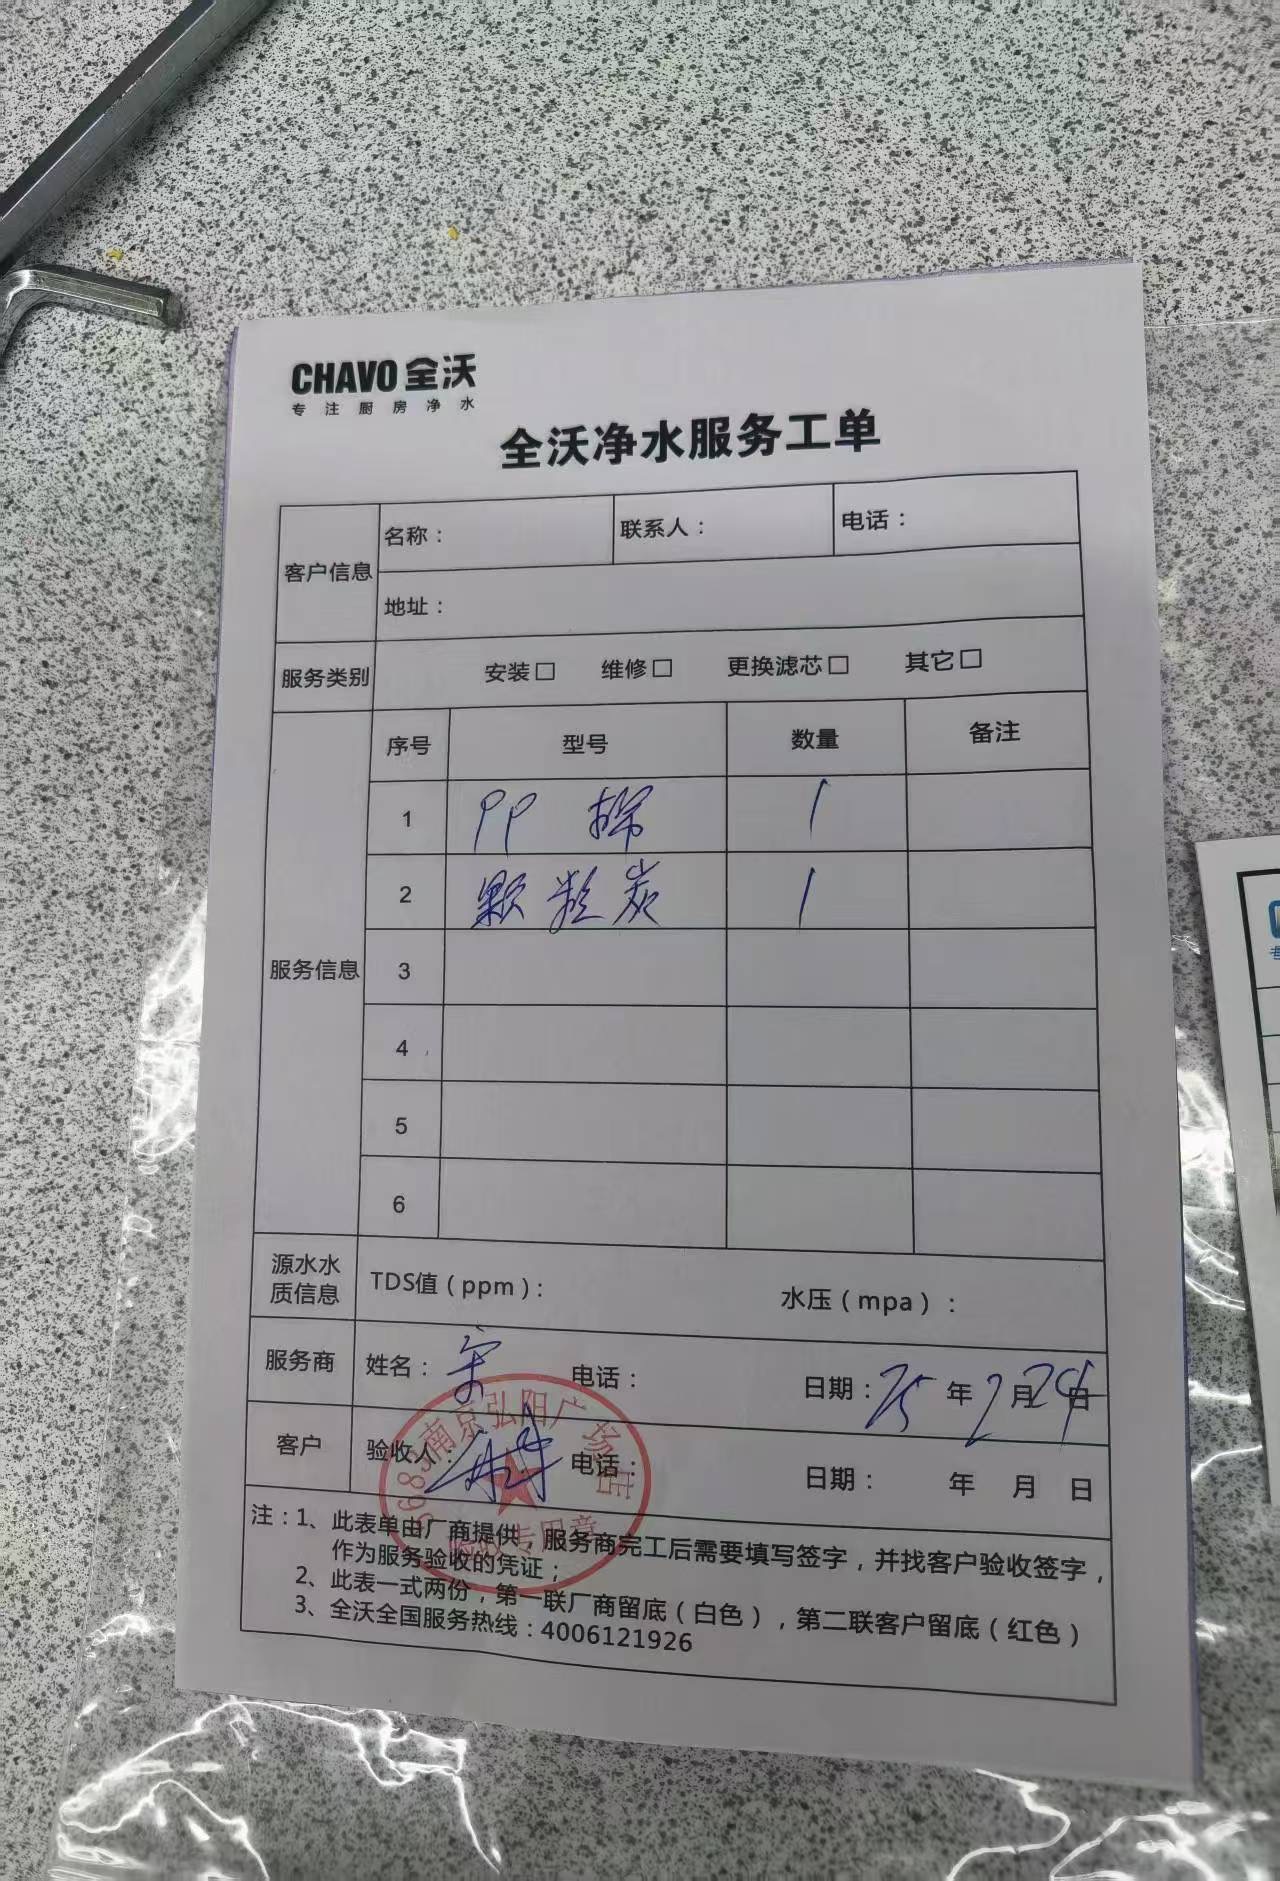 CHAVO 全沃
专注厨房净水
全沃净水服务工单
客户信息
名称：
联系人：
电话：
地址：
服务类别
安装□ 维修□ 更换滤芯□ 其它□
服务信息
序号 型号 数量 备注
1 PP 棉 1
2 颗粒炭 1
3
4
5
6
源水水质信息
TDS值（ppm）： 水压（mpa）：
服务商
姓名：宋 电话： 日期：25年2月24日
客户
验收人： 电话： 日期： 年 月 日
南京弘阳广场店
专用章
注：1、此表单由厂商提供，服务商完工后需要填写签字，并找客户验收签字，
作为服务验收的凭证；
2、此表一式两份，第一联厂商留底（白色），第二联客户留底（红色）
3、全沃全国服务热线：4006121926